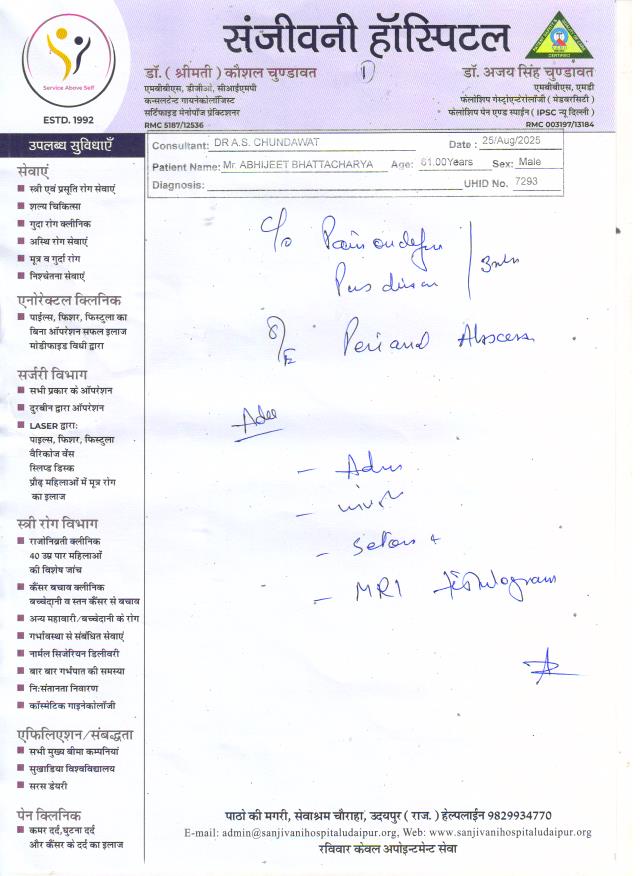 संजीवनी हॉस्पिटल
Service Above Self
ESTD. 1992
CERTIFIED
1
डॉ. ( श्रीमती ) कौशल चुण्डावत
एमबीबीएस, डीजीओ, सीआईएमपी
कन्सलटेन्ट गायनेकोलॉजिस्ट
सर्टिफाइड मेनोपॉज प्रैक्टिशनर
RMC 5187/12536
डॉ. अजय सिंह चुण्डावत
एमबीबीएस, एमडी
फेलोशिप गेस्ट्रोएन्टरोलॉजी ( मेडवरसिटी )
फेलोशिप पेन एण्ड स्पाईन ( IPSC न्यू दिल्ली )
RMC 003197/13184
Consultant: DR A.S. CHUNDAWAT Date : 25/Aug/2025
Patient Name: Mr. ABHIJEET BHATTACHARYA Age: 61.00Years Sex: Male
Diagnosis: UHID No. 7293
उपलब्ध सुविधाएँ
सेवाएं
स्त्री एवं प्रसूति रोग सेवाएं
शल्य चिकित्सा
गुदा रोग क्लीनिक
अस्थि रोग सेवाएं
मूत्र व गुर्दा रोग
निश्चेतना सेवाएं
एनोरेक्टल क्लिनिक
पाईल्स, फिशर, फिस्टुला का
बिना ऑपरेशन सफल इलाज
मोडीफाइड विधी द्वारा
सर्जरी विभाग
सभी प्रकार के ऑपरेशन
दुरबीन द्वारा ऑपरेशन
LASER द्वारा:
पाइल्स, फिशर, फिस्टुला
वैरिकोज वेंस
स्लिप्ड डिस्क
प्रौढ़ महिलाओं में मूत्र रोग
का इलाज
स्त्री रोग विभाग
राजोनिव्रती क्लीनिक
40 उम्र पार महिलाओं
की विशेष जांच
कैंसर बचाव क्लीनिक
बच्चेदानी व स्तन कैंसर से बचाव
अन्य महावारी/बच्चेदानी के रोग
गर्भावस्था से संबंधित सेवाएं
नार्मल सिजेरियन डिलीवरी
बार बार गर्भपात की समस्या
नि:संतानता निवारण
कॉस्मेटिक गाइनेकोलॉजी
एफिलिएशन/संबद्धता
सभी मुख्य बीमा कम्पनियां
सुखाडिया विश्वविद्यालय
सरस डेयरी
पेन क्लिनिक
कमर दर्द,घुटना दर्द
और कैंसर के दर्द का इलाज
C/o Pain
Pus
O/E Perianal Abscess
- Adm
- Seton
- MRI fistulogram
पाठो की मगरी, सेवाश्रम चौराहा, उदयपुर ( राज. ) हेल्पलाईन 9829934770
E-mail: admin@sanjivanihospitaludaipur.org, Web: www.sanjivanihospitaludaipur.org
रविवार केवल अपोइन्टमेन्ट सेवा